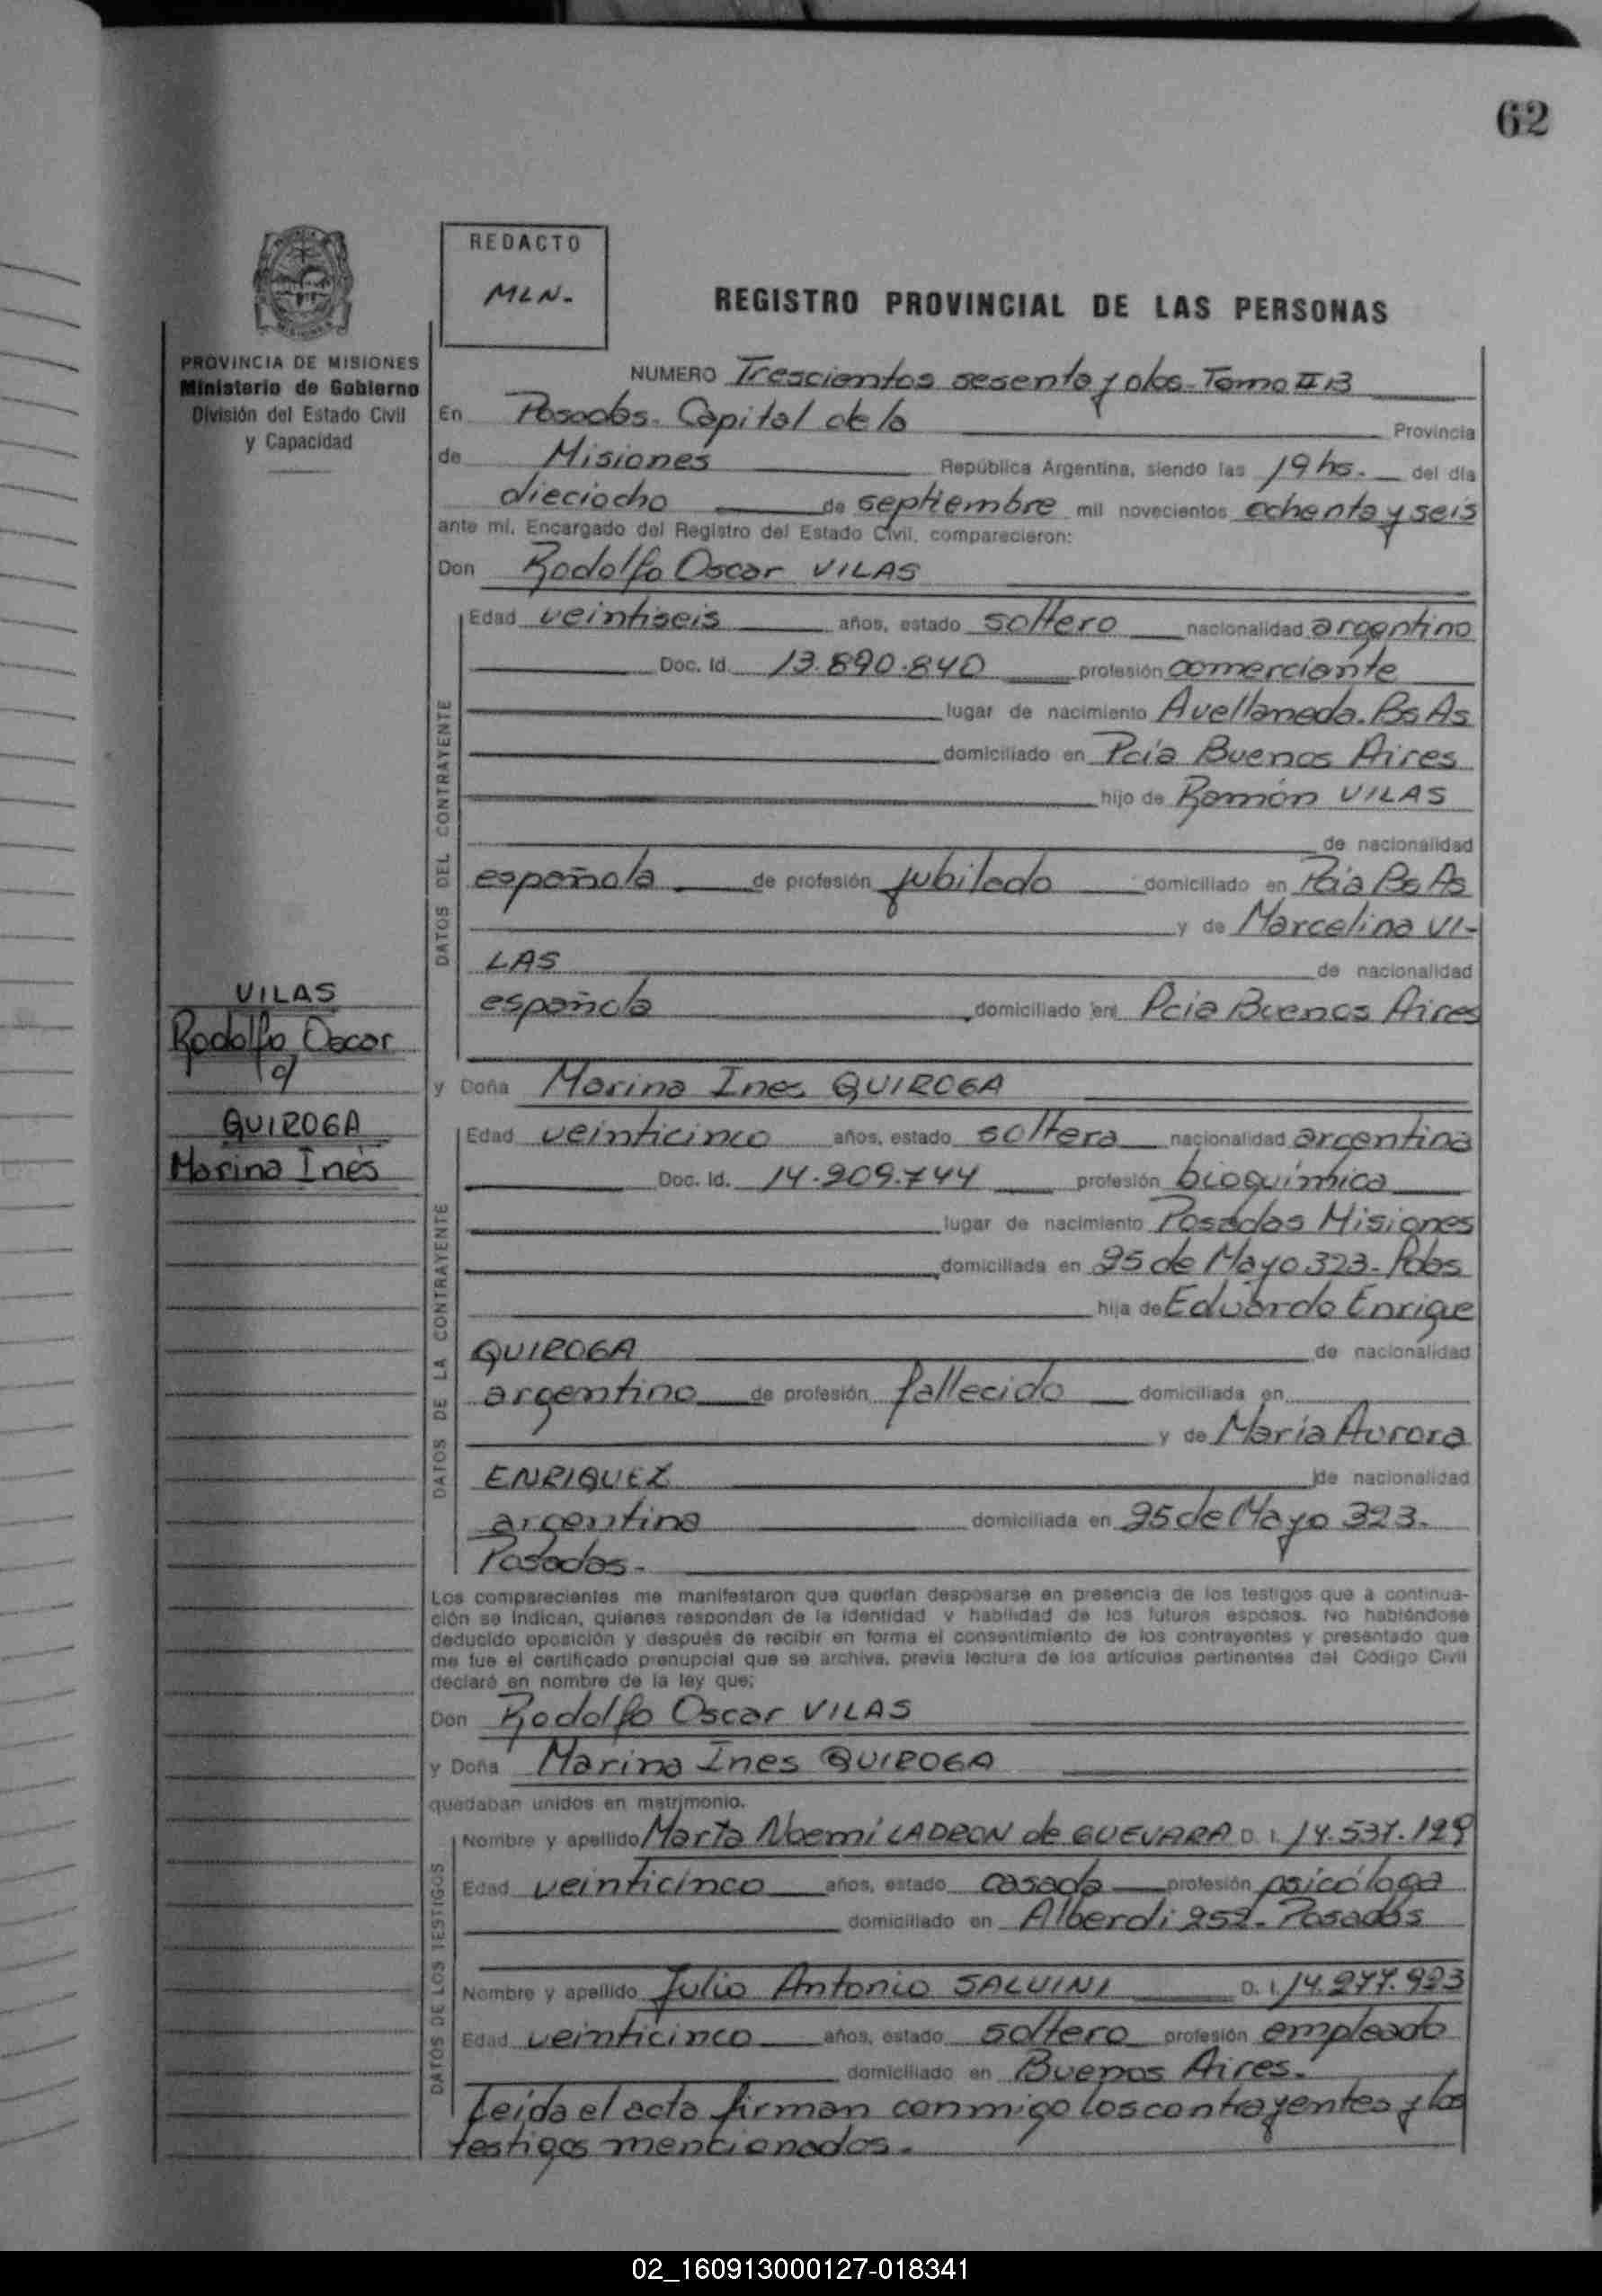 62
REDACTO
MLN.-
REGISTRO PROVINCIAL DE LAS PERSONAS
PROVINCIA DE MISIONES
Ministerio de Gobierno
División del Estado Civil
y Capacidad
NUMERO Trescientos sesenta y dos - Tomo II B
En Posadas. Capital de la Provincia
de Misiones República Argentina, siendo las 19 hs. del día
dieciocho de septiembre mil novecientos ochenta y seis
ante mí, Encargado del Registro del Estado Civil, comparecieron:
Don Rodolfo Oscar VILAS
DATOS DEL CONTRAYENTE
Edad veintiseis años, estado soltero nacionalidad argentino
Doc. Id. 13.890.840 profesión comerciante
lugar de nacimiento Avellaneda. Bs As
domiciliado en Pcia Buenos Aires
hijo de Ramón VILAS
de nacionalidad
española de profesión jubilado domiciliado en Pcia Bs As
y de Marcelina VI-
LAS de nacionalidad
española domiciliado en Pcia Buenos Aires
VILAS
Rodolfo Oscar
c/
QUIROGA
Marina Inés
y Doña Marina Ines QUIROGA
DATOS DE LA CONTRAYENTE
Edad veinticinco años, estado soltera nacionalidad argentina
Doc. Id. 14.209.744 profesión bioquímica
lugar de nacimiento Posadas Misiones
domiciliada en 25 de Mayo 323 - Pdas
hija de Eduardo Enrique
QUIROGA de nacionalidad
argentino de profesión fallecido domiciliada en
y de María Aurora
ENRIQUEZ de nacionalidad
argentina domiciliada en 25 de Mayo 323.
Posadas.-
Los comparecientes me manifestaron que querían desposarse en presencia de los testigos que a continua-
ción se indican, quienes responden de la identidad y habilidad de los futuros esposos. No habiéndose
deducido oposición y después de recibir en forma el consentimiento de los contrayentes y presentado que
me fue el certificado prenupcial que se archiva, previa lectura de los artículos pertinentes del Código Civil
declaré en nombre de la ley que:
Don Rodolfo Oscar VILAS
y Doña Marina Ines QUIROGA
quedaban unidos en matrimonio.
DATOS DE LOS TESTIGOS
Nombre y apellido Marta Noemí LADRON de GUEVARA D. I. 14.537.129
Edad veinticinco años, estado casada profesión psicóloga
domiciliado en Alberdi 252 - Posadas
Nombre y apellido Julio Antonio SALVINI D. I. 14.277.923
Edad veinticinco años, estado soltero profesión empleado
domiciliado en Buenos Aires.
Leída el acta firman conmigo los contrayentes y los
testigos mencionados.
02_160913000127-018341